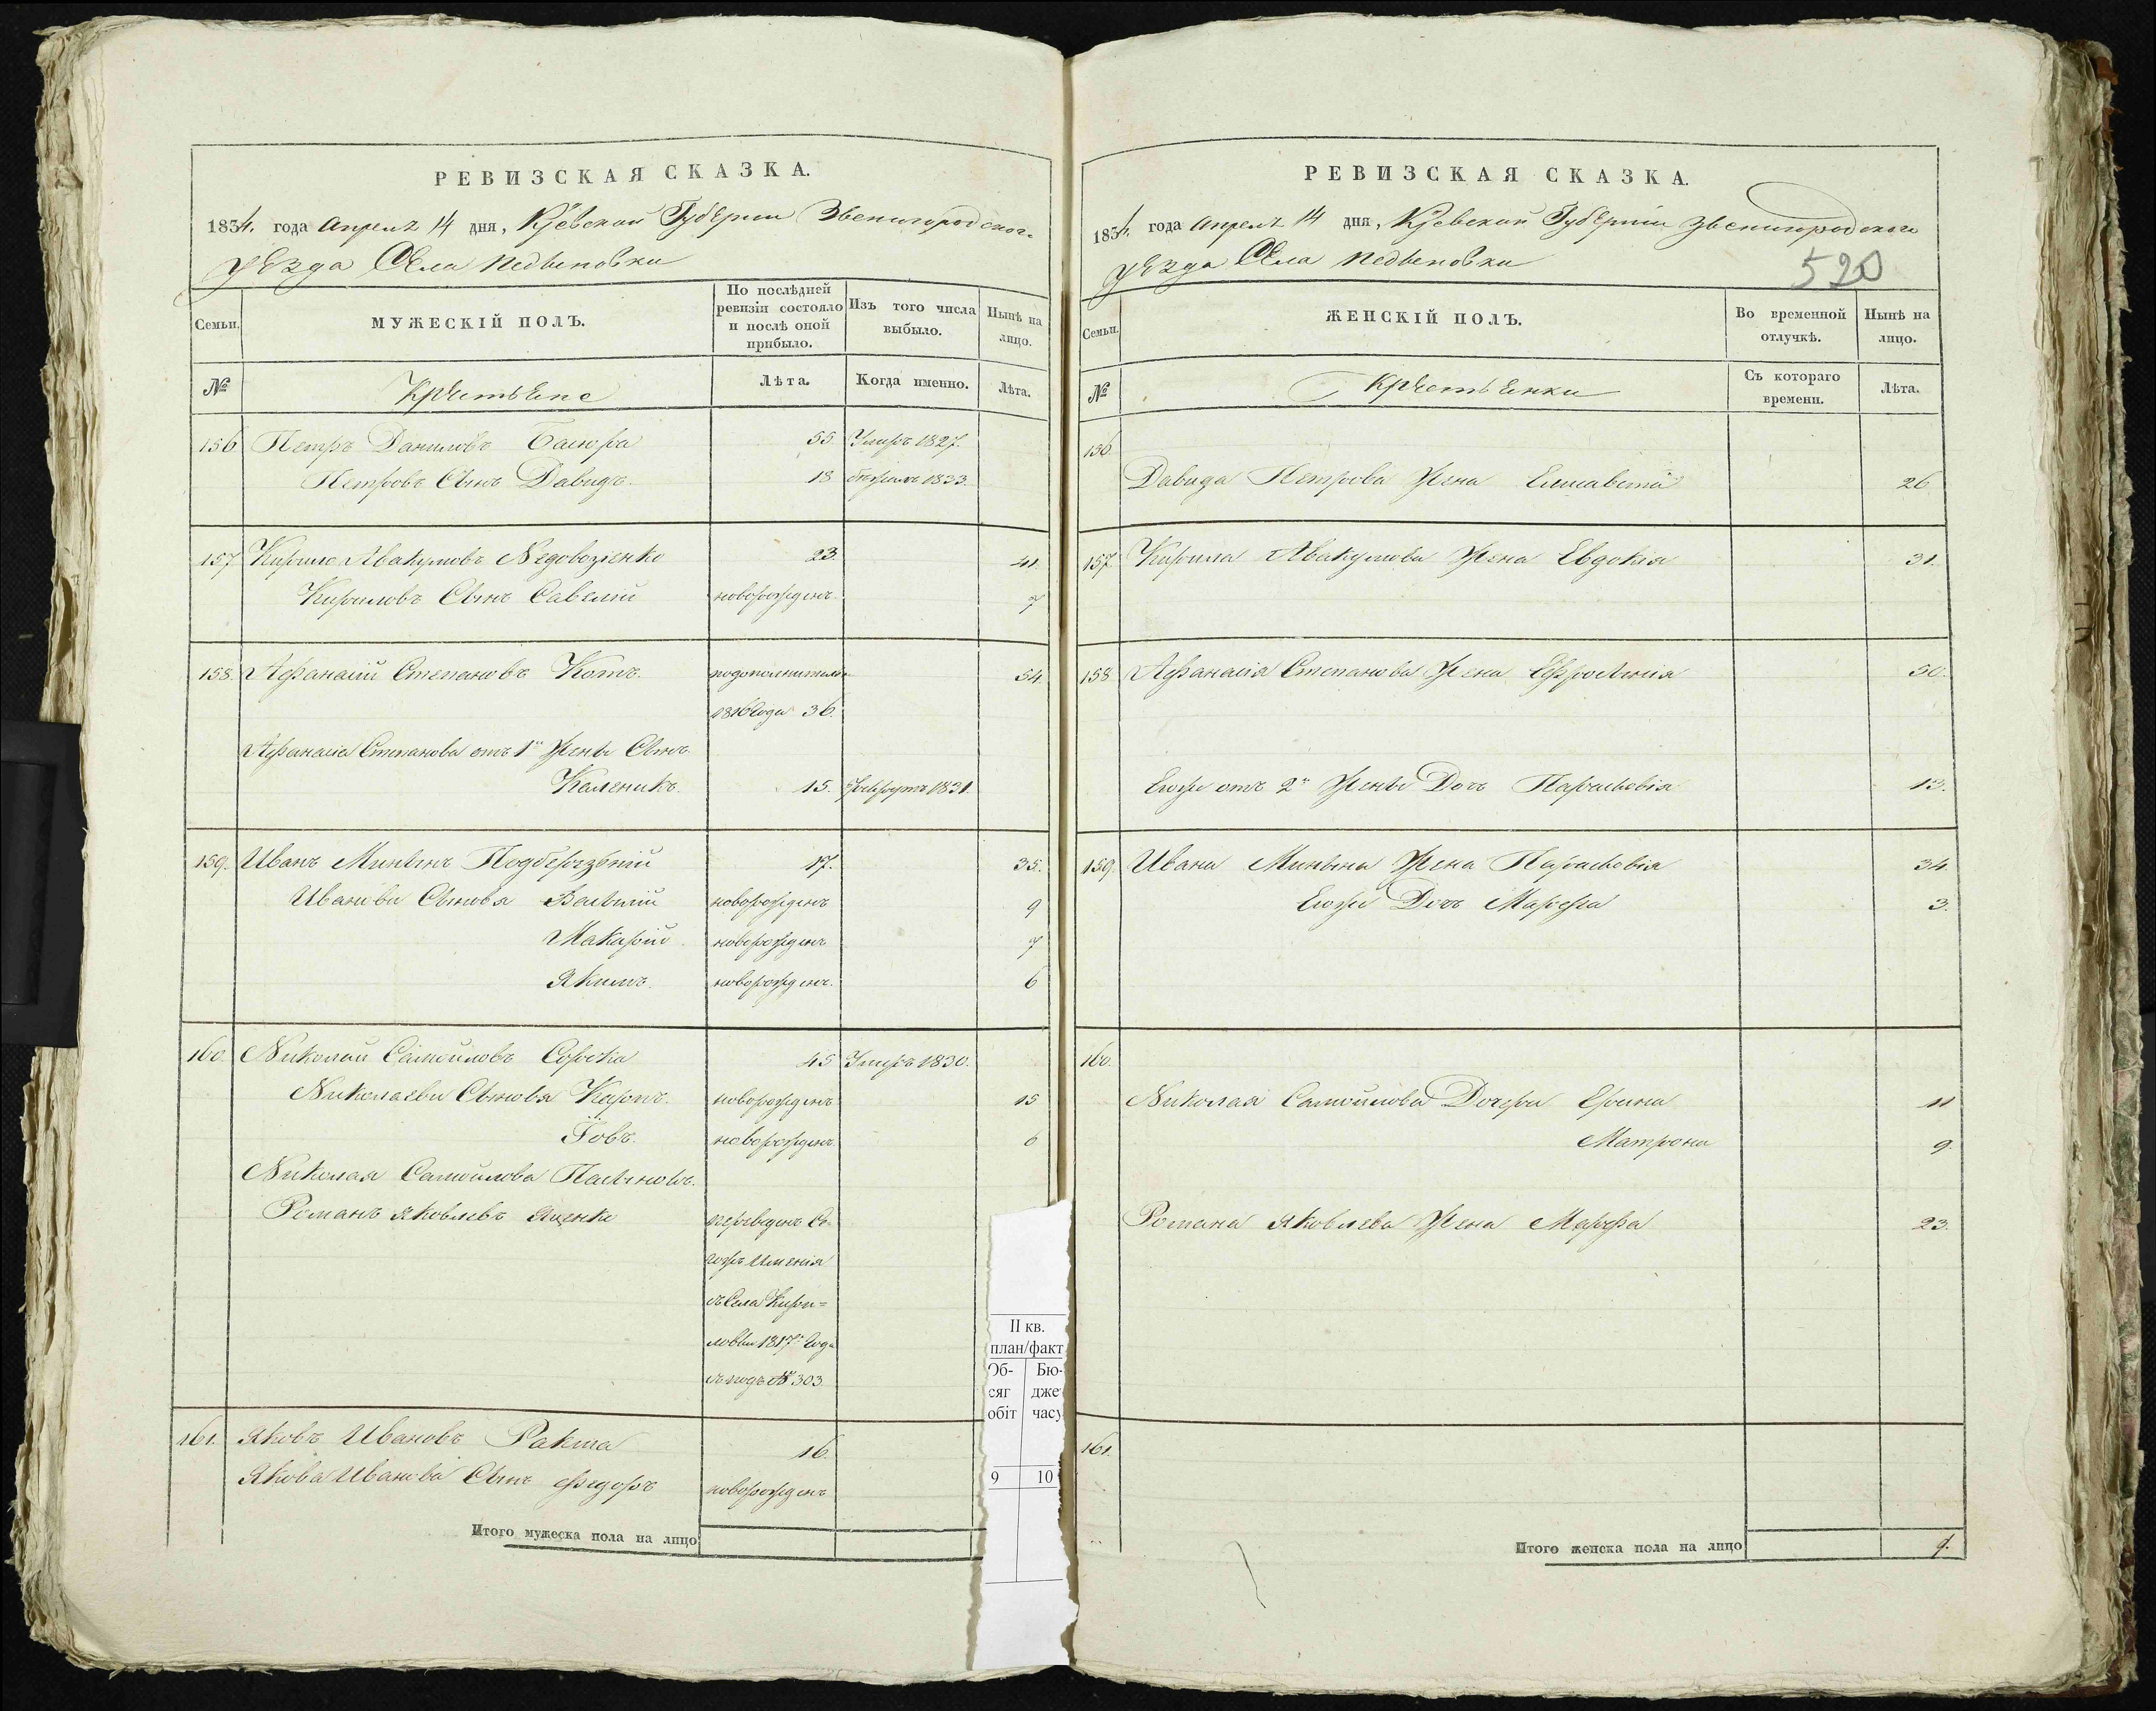 РЕВИЗСКАЯ СКАЗКА.
1834. года Апреля 14 дня, Кіевской Губерніи Звенигородского
уезда Села
Семьи.
МУЖЕСКІЙ ПОЛЪ.
По послѣдней ревизіи состояло и послѣ оной прибыло.
Изъ того числа выбыло.
Нынѣ на лицо.
№
Крестьяне
Лѣта.
Когда именно.
Лѣта.
156 Петръ Даниловъ 55. Умеръ 1827.
Петровъ Сынъ Давидъ. 18 1833.
157 Кирило Авакумовъ 23. 41.
Кириловъ Сынъ Савелій новорожденъ. 7
158. Афанасій Степановъ Котъ. 54.
1816 года 36.
Афанасія Степанова отъ 1й Жены Сынъ
Каленикъ. 15. Рекрутъ 1831.
159. Иванъ Мининъ 17. 35.
Ивановы Сыновья Василій новорожденъ 9
Макарій новорожденъ 7
Якимъ. новорожденъ. 6
160. Николай Самойловъ Сорока 45 Умеръ 1830.
Николаевы Сыновья Карпъ. новорожденъ 15
Іовъ. новорожденъ. 6
Николая Самойлова Пасынокъ.
Романъ Яковлевъ Яценко переведенъ
Имения
Села Кири=
ловки 1817го Года
подъ № 303
161. Яковъ Ивановъ 16.
Якова Иванова Сынъ Федоръ новорожденъ
Итого мужеска пола на лицо
II кв.
план/факт
Об-
сяг
обіт
Бю-
дже
часу
9 10
РЕВИЗСКАЯ СКАЗКА.
1834. года Апреля 14 дня, Кіевской Губерніи Звенигородского
уезда Села
520
Семьи.
ЖЕНСКІЙ ПОЛЪ.
Во временной отлучкѣ.
Нынѣ на лицо.
№
Крестьянки
Съ котораго времени.
Лѣта.
156.
Давида Петрова Жена Елисавета 26
157. Кирила Авакумова Жена Евдокія 31.
158 Афанасія Степанова Жена Ефросинія 50.
Егоже отъ 2й Жены Дочь Парасковія 13.
159. Ивана Минина Жена Парасковія 34.
Егоже Дочь Марфа 3.
160.
Николая Самойлова Дочери Ерина 11
Матрона 9.
Романа Яковлева Жена Марфа 23.
161.
Итого женска пола на лицо 9.